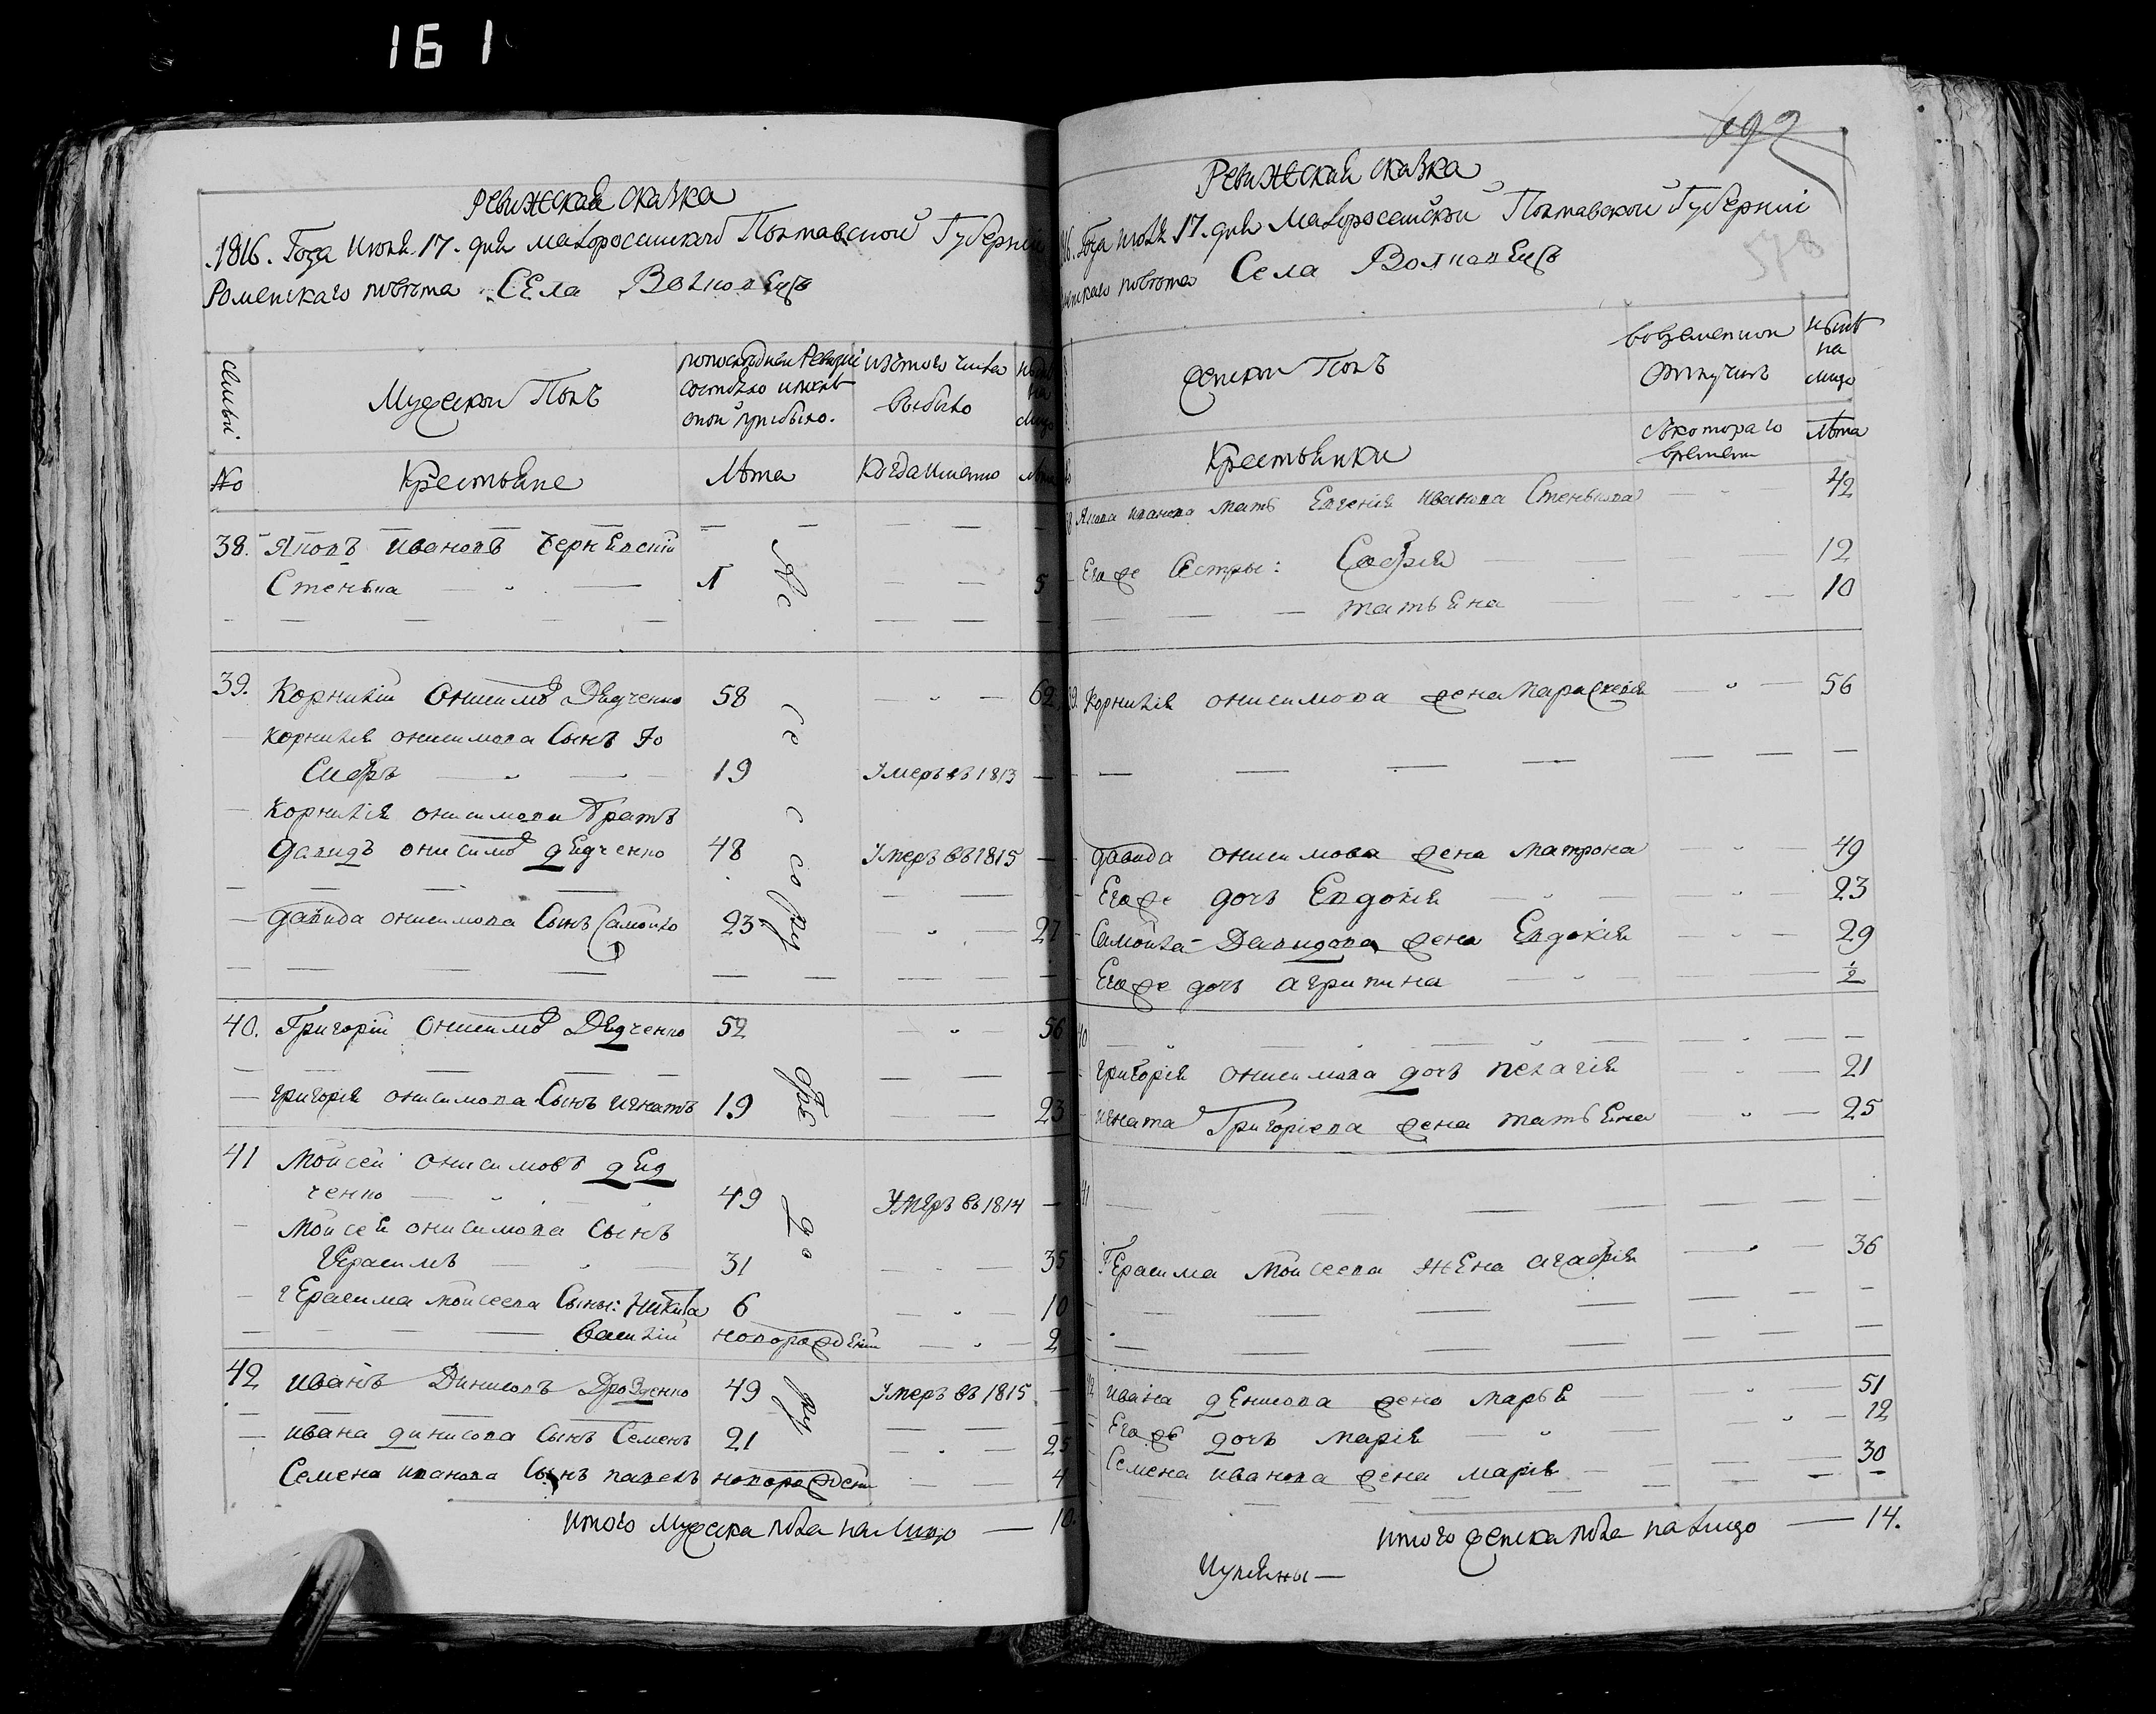 161
Ревижская сказка
1816. Года Июля. 17. дня малоросийской Полтавской Губернии
Роменского повета Села Волковец
семьи
Мужеской Полъ
по последней Ревизии состояло и после оной прибыло.
Изтого числа выбыло
ныне на лицо
№
Крестьяне
Лета
Когда имянно
Лета
38. Яковъ Ивановъ
Стенька 5
39. Корнилій Онисимовъ Дядченко 58 62
Корнилія онисимова Сынъ Ио
сифъ 19 Умеръ въ 1813
Корнилія онисимова братъ
Давидъ онисимовъ дядченко 48 Умеръ въ 1815
Давида онисимова Сынъ Самойло 23 27
40. Григорій Онисимовъ Дядченко 52 56
григорія онисимова Сынъ игнатъ 19 23
41 Мойсей онисимовъ дяд
ченко 49 Умеръ въ 1814
Мойсея онисимова Сынъ
Герасимъ 31 35
герасима мойсеева Сыны: Никита 6 10
василій новорожденій 2
42 иванъ Динисовъ Дрозденко 49 Умеръ въ 1815
ивана динисова Сынъ Семенъ 21 25
Семена иванова Сынъ павелъ новорожден 4
итого мужеска пола на лицо — 10
Ревижская сказка
1816. Года июля 17. дня Малоросийской Полтавской Губерніи
Роменского повета Села Волковец
578
Женской Полъ
во временной отлучке
ныне на лицо
Крестьянки
с которого времени
Лета
38 Якова иванова мать Евгения иванова Стенькова 42
Его же Сестры: Софія 12
татьяна 10
39. Корнилія онисимова жена Параскевія 56
Давида онисимова жена матрона 49
Его же дочъ Евдокія 23
Самойла Давидова жена Евдокія 29
Его же дочъ агрипина ½
40
григорія онисимова дочъ пелагія 21
игната Григоріева жена татьяна 25
41
Герасима Мойсеева жена агафія 36
42 ивана денисова жена марья 51
Его же дочъ марія 12
Семена иванова жена марія 30
итого женска пола на лицо — 14.